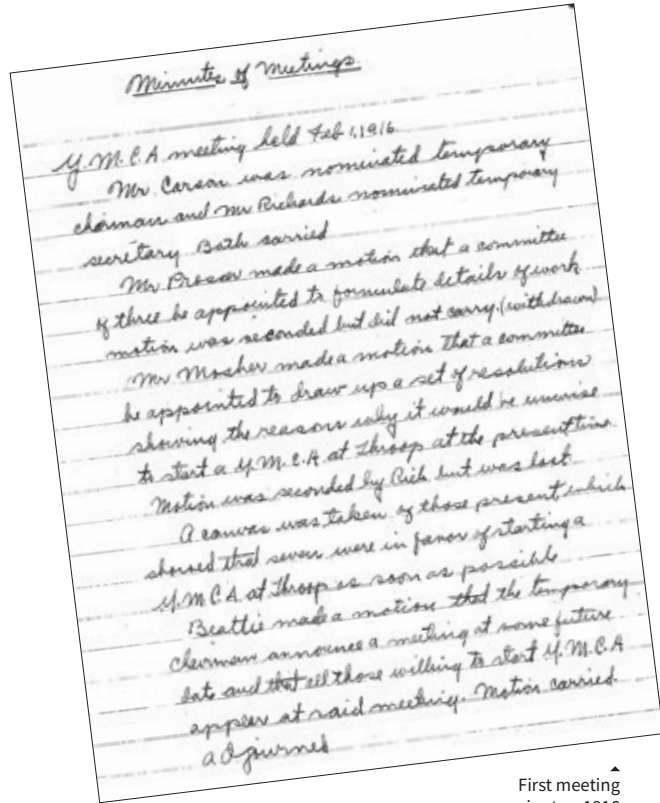 Minutes of Meetings
Y.M.C.A meeting held Feb 1, 1916
Mr. Carson was nominated temporary
chairman and Mr Richards nominated temporary
secretary Both carried
Mr Prosser made a motion that a committee
of three be appointed to formulate details of work
motion was seconded but did not carry. (withdrawn)
Mr Mosher made a motion that a committee
be appointed to draw up a set of resolutions
showing the reasons why it would be unwise
to start a Y.M.C.A. at Throop at the present time.
Motion was seconded by Rich but was lost.
A canvas was taken of those present which
showed that seven were in favor of starting a
Y.M.C.A. at Throop as soon as possible
Beattie made a motion that the temporary
chairman announce a meeting at some future
date and that all those willing to start Y.M.C.A
appear at said meeting. Motion carried.
adjourned
First meeting
1916